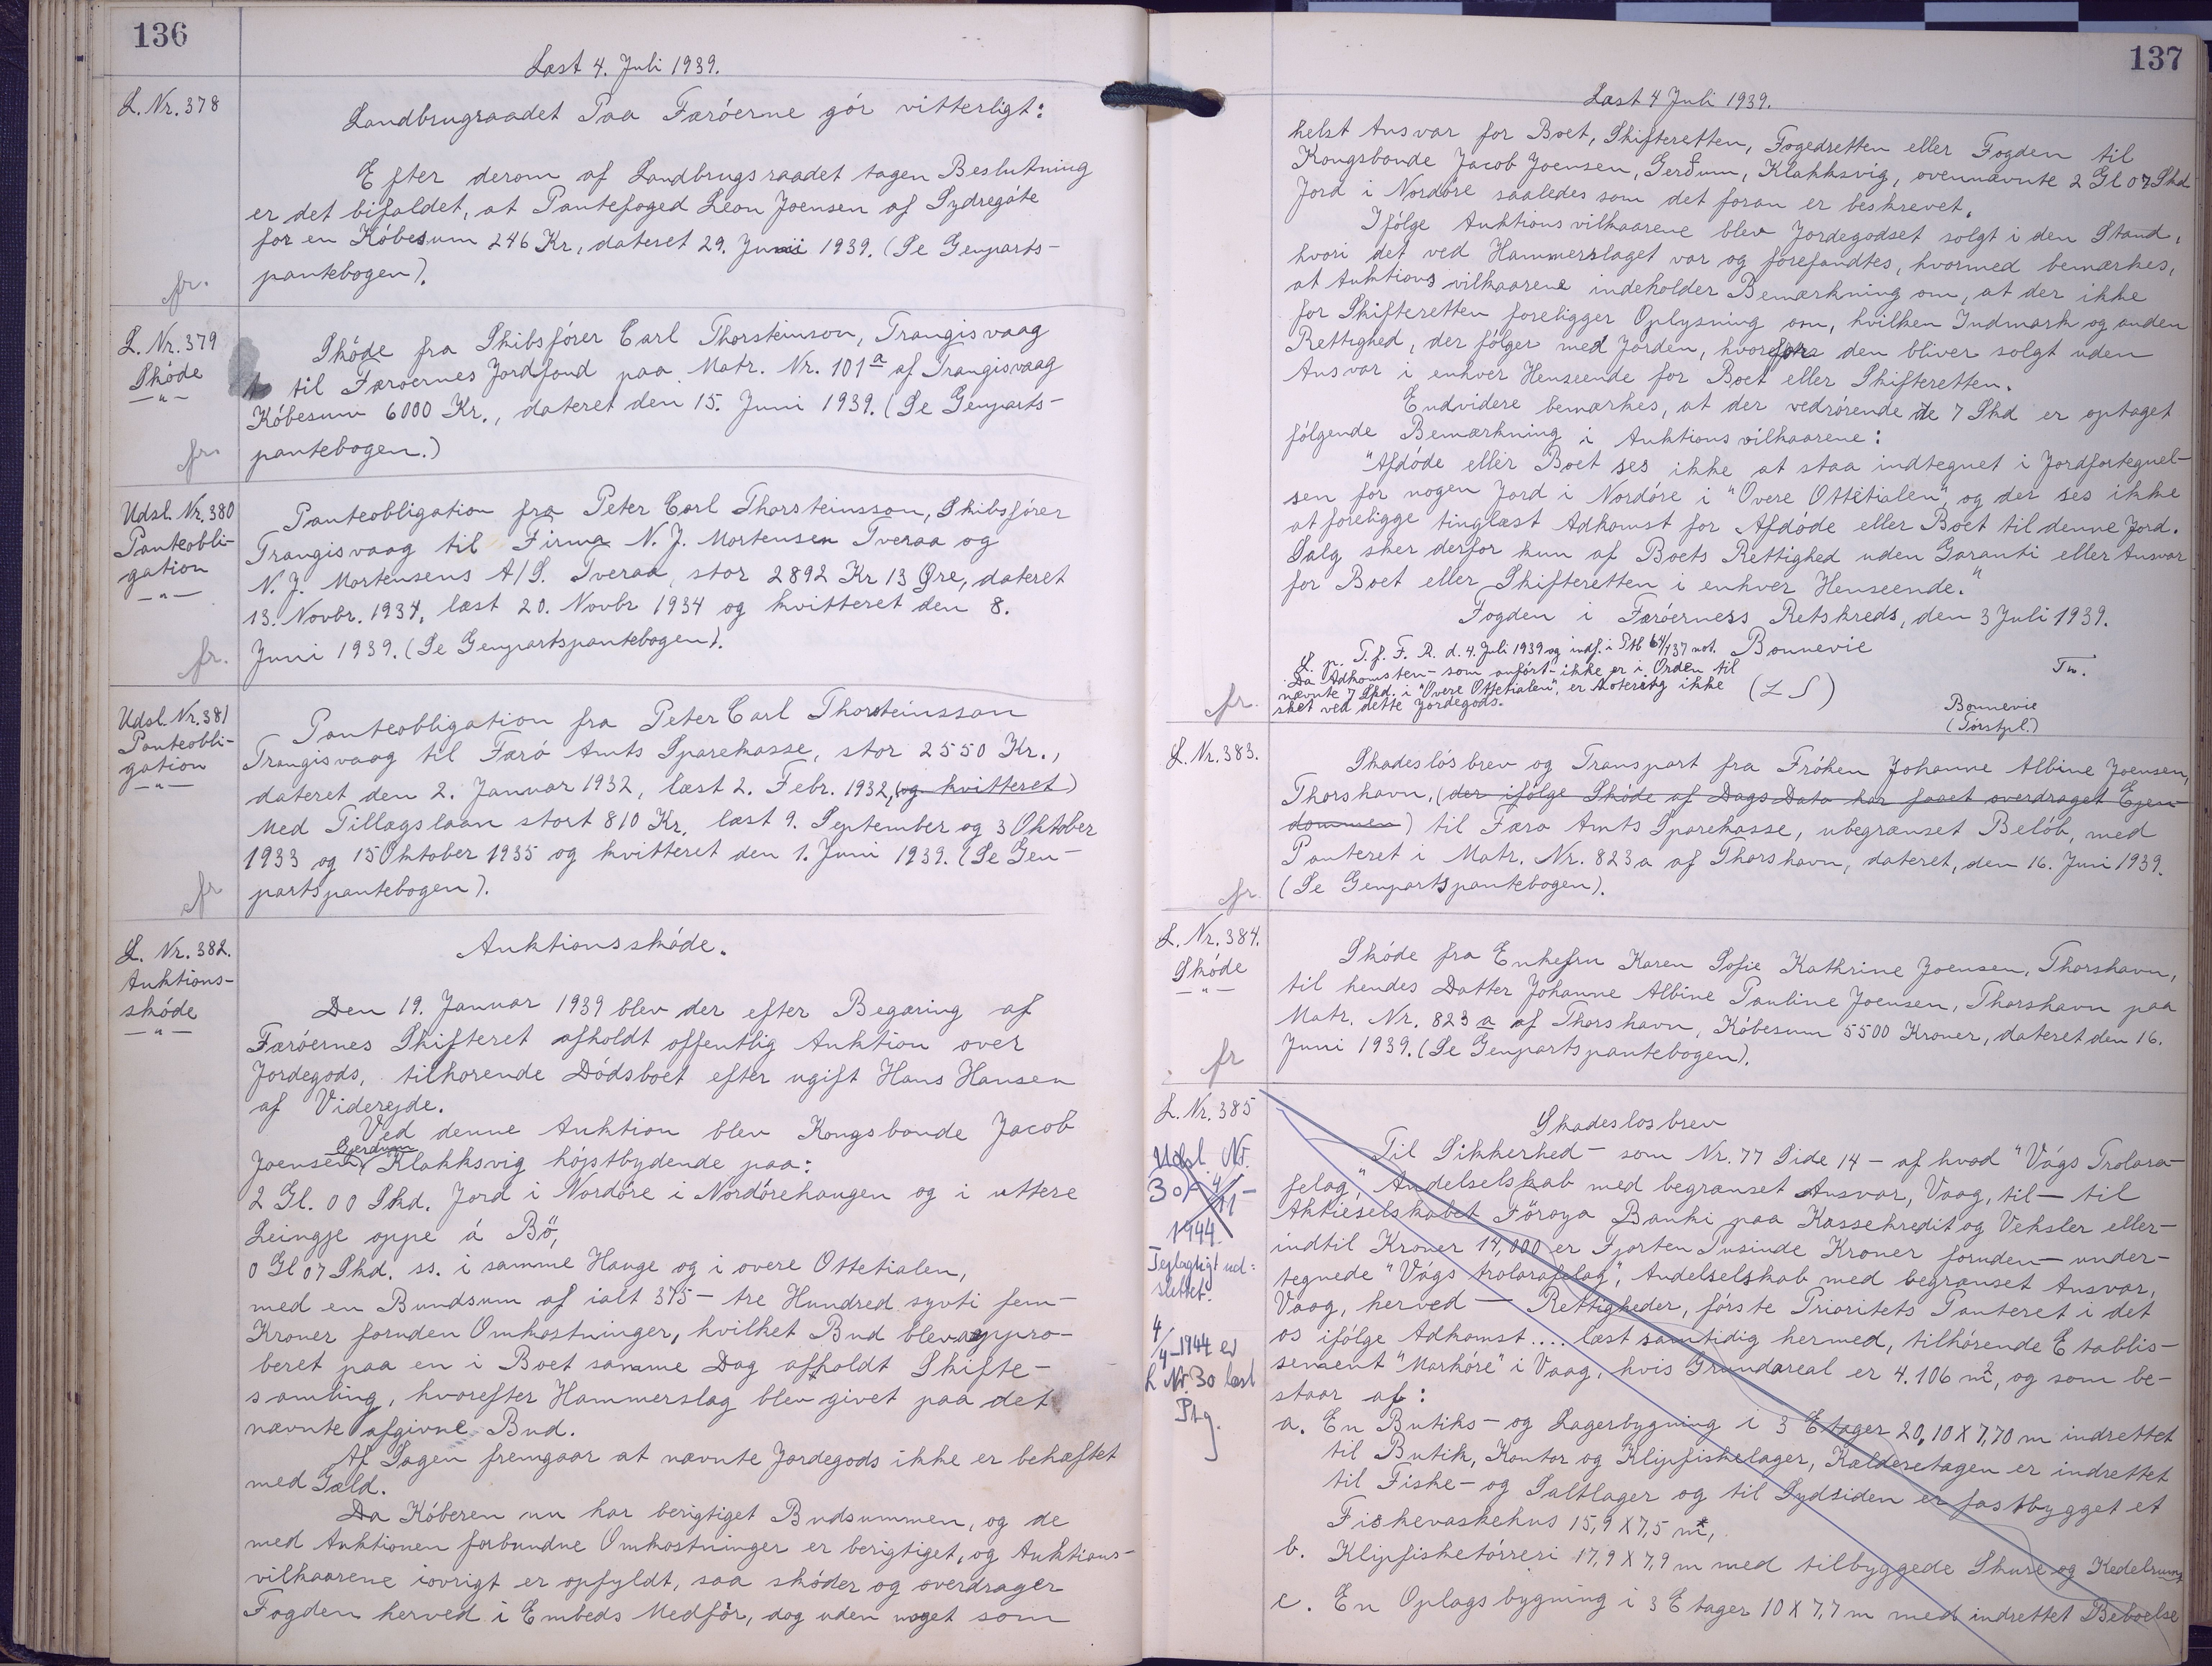 136
Læst 4. Juli 1939.
L. Nr. 378
Landbrugraadet Paa Færóerne gór vitterligt:
Efter derom af Landbrugsraadet tagen Beslutning
er det bifaldet, at Pantefoged Leon Joensen af Sydregóte
for en Kóbesum 246 Kr, dateret 29. Juni 1939. (Se Genparts-
pantebogen).
fr.
L. Nr. 379
Skóde
— " —
Skóde fra Skibsfórer Carl Thorsteinson, Trangisvaag
til Færoernes Jordfond paa Matr. Nr. 101 a af Trangisvaag
Kóbesum 6000 Kr., dateret den 15. Juni 1939. (Se Genparts-
pantebogen.)
fr.
Udsl. Nr. 380
Panteobli-
gation
— " —
Panteobligation fra Peter Carl Thorsteinsson, Skibsfórer
Trangisvaag til Firma N. J. Mortensen Tveraa og
N. J. Mortensens A/S. Tveraa, stor 2892 Kr 13 Øre, dateret
13. Novbr. 1934, læst 20. Novbr 1934 og kvitteret den 8.
Juni 1939. (Se Genpartspantebogen).
fr.
Udsl. Nr. 381
Panteobli-
gation
— " —
Panteobligation fra Peter Carl Thorsteinsson
Trangisvaag til Færó Amts Sparekasse, stor 2550 Kr.,
dateret den 2. Januar 1932, læst 2. Febr. 1932, (og kvitteret)
Med Tillægslaan stort 810 Kr. læst 9. September og 3 Oktober
1933 og 15 Oktober 1935 og kvitteret den 1. Juni 1939. (Se Gen-
partspantebogen).
fr
L. Nr. 382.
Auktions-
skóde
— " —
Auktionsskóde.
Den 19. Januar 1939 blev der efter Begæring af
Færóernes Skifteret afholdt offentlig Auktion over
Jordegods, tilhorende Dódsboet efter ugift Hans Hansen
af Viderejde.
Ved denne Auktion blev Kongsbonde Jacob
Gerdum
Joensen, Klakksvig hójstbydende paa:
2 Gl. 00 Skd. Jord i Nordóre i Nordórehaugen og i uttere
Leingje oppe á Bö,
0 Gl 07 Skd. ss. i samme Hauge og i overe Ottetialen,
med en Bundsum af ialt 375 - tre Hundred syvti fem-
Kroner foruden Omkostninger, hvilket Bud blev appro-
beret paa en i Boet samme Dag afholdt Skifte-
samling, hvorefter Hammerslag blev givet paa det
nævnte afgivne Bud.
Af Sagen fremgaar at nævnte Jordegods ikke er behæftet
med Gæld.
Da Kóberen nu har berigtiget Budsummen, og de
med Auktionen forbundne Omkostninger er berigtiget, og Auktions-
vilkaarene iovrigt er opfyldt, saa skóder og overdrager
Fogden herved i Embeds Medfór, dog uden noget som
137
Læst 4 Juli 1939.
helst Ansvar for Boet, Skifteretten, Fogedretten eller Fogden til
Kongsbonde Jacob Joensen, Gerðum, Klakksvig, ovennævnte 2 Gl 07 Skd
Jord i Nordóre saaledes som det foran er beskrevet.
Ifólge Auktionsvilkaarene blev Jordegodset solgt i den Stand,
hvori det ved Hammerslaget var og forefandtes, hvormed bemærkes,
at Auktionsvilkaarene indeholder Bemærkning om, at der ikke
for Skifteretten foreligger Oplysning om, hvilken Indmark og anden
Rettighed, der fólger med Jorden, hvorfor den bliver solgt uden
Ansvar i enhver Henseende for Boet eller Skifteretten.
Endvidere bemærkes, at der vedrórende de 7 Skd er optaget
fólgende Bemærkning i Auktionsvilkaarene:
"Afdóde eller Boet ses ikke at staa indtegnet i Jordfortegnel-
sen for nogen Jord i Nordóre i "Overe Ottetialen", og der ses ikke
at foreligge tinglæst Adkomst for Afdóde eller Boet til denne Jord.
Salg sker derfor kun af Boets Rettighed uden Garanti eller Ansvar
for Boet eller Skifteretten i enhver Henseende."
Fogden i Færóerness Retskreds, den 3 Juli 1939.
Bonnevie
L. p. T. f. F. R. d. 4. Juli 1939 og indf. i Ptb 64/137 not.
Da Adkomsten - som anfórt - ikke er i Orden til
nævnte 7 Skd. i "Overe Ottetialen", er Notering ikke
sket ved dette Jordegods.
(L S)
Tw.
Bonnevie
(Tórstpl.)
fr.
L. Nr. 383.
Skadeslósbrev og Transport fra Fróken Johanne Albine Joensen,
Thorshavn, (der ifólge Skóde af Dags Dato har faaet overdraget Ejen-
dommen) til Færo Amts Sparekasse, ubegrænset Belób, med
Panteret i Matr. Nr. 823 a af Thorshavn, dateret, den 16. Juni 1939.
(Se Genpartspantebogen).
fr.
L. Nr. 384.
Skóde
— " —
Skóde fra Enkefru Karen Sofie Kathrine Joensen, Thorshavn,
til hendes Datter Johanne Albine Pauline Joensen, Thorshavn paa
Matr. Nr. 823 a af Thorshavn, Kóbesum 5500 Kroner, dateret den 16.
Juni 1939. (Se Genpartspantebogen).
fr
L. Nr. 385
Skadeslosbrev
Til Sikkerhed - som Nr. 77 Side 14 - af hvad "Vágs Trolara-
felag" Andelselskab med begrænset Ansvar, Vaag, til - til
Aktieselskabet Föroya Banki paa Kassekredit og Veksler eller -
indtil Kroner 14,000 er Fjorten Tusinde Kroner foruden - under-
tegnede "Vágs trolarafelag", Andelselskab med begrænset Ansvar,
Vaag, herved — Rettigheder, fórste Prioritets Panteret i det
os ifólge Adkomst .... læst samtidig hermed, tilhórende Etablis-
sement "Markóre" i Vaag, hvis Grundareal er 4.106 m², og som be-
staar af:
a. En Butiks- og Lagerbygning i 3 Etager 20,10 X 7,70 m indrettet
til Butik, Kontor og Klipfiskelager, Kælderetagen er indrettet
til Fiske- og Saltlager og til Sydsiden er fastbygget et
Fiskevaskehus 15,9 X 7,5 m,
b. Klipfisketórreri 17,9 X 7,9 m med tilbyggede Skure og Kedelrum,
c. En Oplagsbygning i 3 Etager 10 X 7,7 m med indrettet Beboelse
Udsl. Nr.
30
1944
Fejlagtigt ud-
slettet.
4/4-1944 er
L Nr. 30 læst